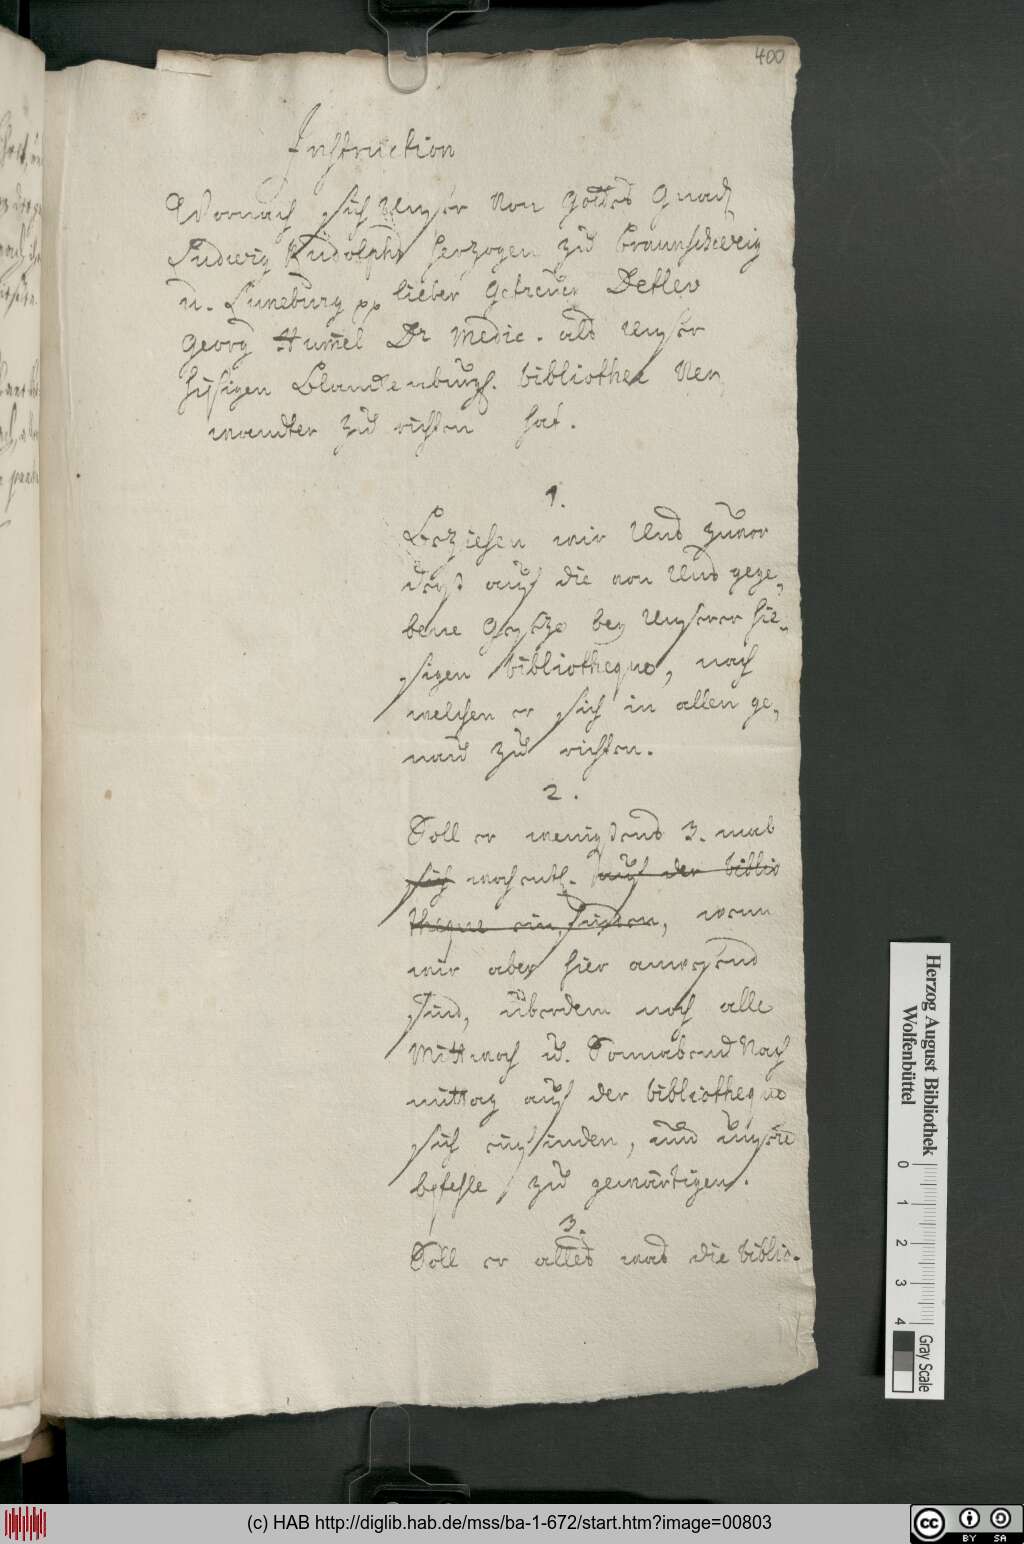 400
Instruction
Wornach sich Unser von Gottes Gnad.
Ludwig Rudolphs Herzogen zu Braunschweig
u. Lüneburg pp lieber Getreuer Detlev
Georg Hummel Dr Medic. als Unser
hisigen Blanckenburgs. bibliothec Ver,
wandter zu richten hat.
1.
Beziehen wir Uns zuvor
derst auf die von Uns gege,
bene Gesetze bey Unserer hie,
sigen bibliotheque, nach
welchen er sich in allen ge,
nau zu richten.
2.
Soll er wenigstens 3. mal
sich wochentl. auf der biblio
theque ein finden, wenn
wir aber hier anwesend
sind, überdem noch alle
Mittwoch u. Sonnabend Nach
mittag auf der bibliotheque
sich einfinden, und unsere
befehle zu gewärtigen.
3.
Soll er alles was die biblio-
Herzog August Bibliothek
Wolfenbüttel
0 1 2 3 4
Gray Scale
(c) HAB http://diglib.hab.de/mss/ba-1-672/start.htm?image=00803
cc BY SA